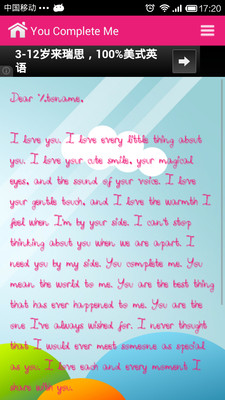 中国移动 ... 17:20
You Complete Me
3-12岁来瑞思，100%美式英
语
Dear %toname,
I love you. I love every little thing about
you. I love your cute smile, your magical
eyes, and the sound of your voice. I love
your gentle touch, and I love the warmth I
feel when I'm by your side. I can't stop
thinking about you when we are apart. I
need you by my side. You complete me. You
mean the world to me. You are the best thing
that has ever happened to me. You are the
one I've always wished for. I never thought
that I would ever meet someone as special
as you. I love each and every moment I
share with you.